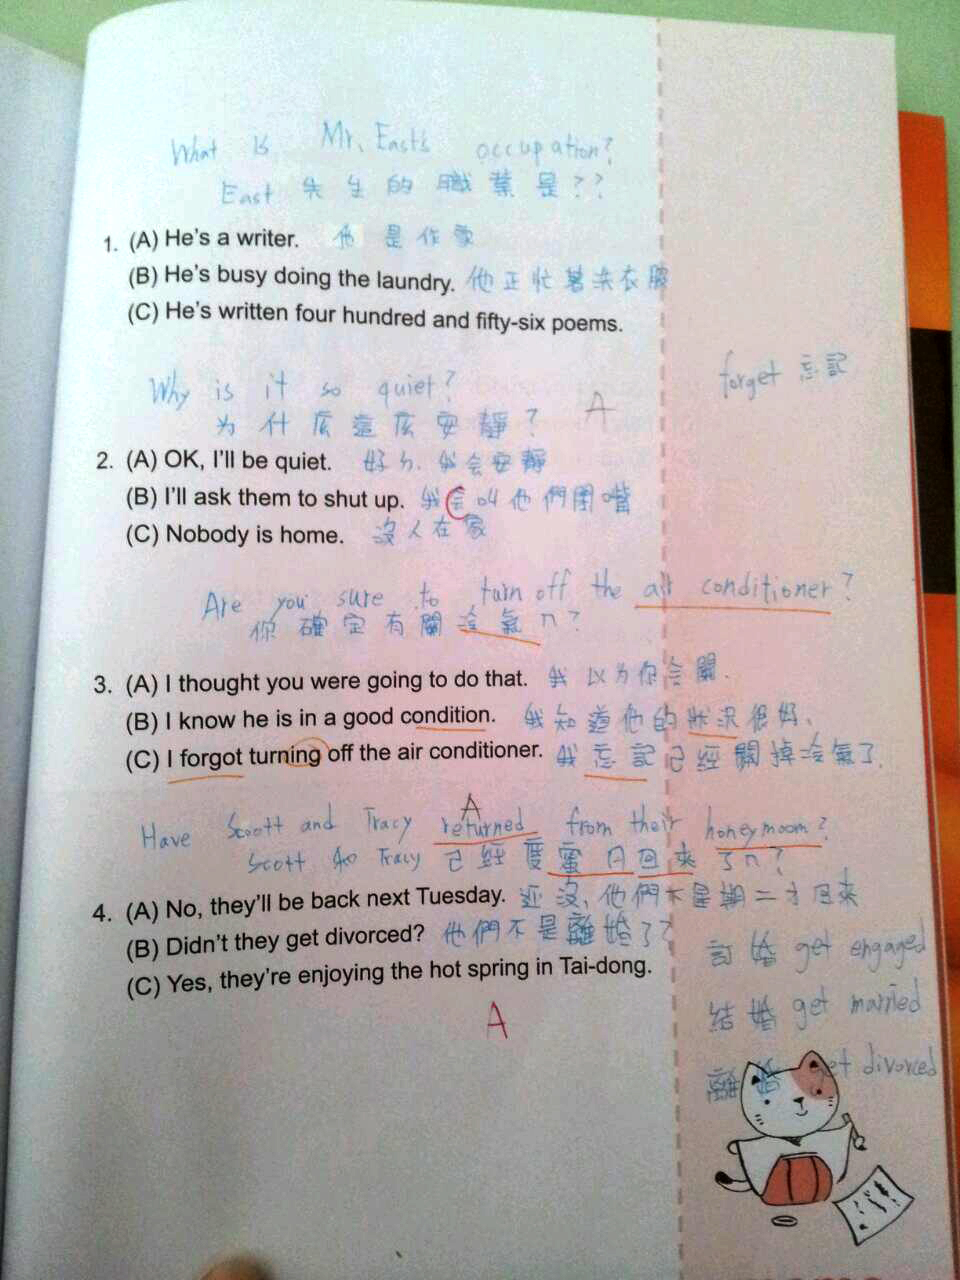 What is Mr. East's occupation?
East 先生的職業是??
1. (A) He's a writer. 他是作家
(B) He's busy doing the laundry. 他正忙著洗衣服
(C) He's written four hundred and fifty-six poems.
Why is it so quiet?
forget 忘記
为什広這広安靜?
A
2. (A) OK, I'll be quiet. 好ㄉ. 我会安靜
(B) I'll ask them to shut up. 我会叫他們閉嘴
(C) Nobody is home. 沒人在家
Are you sure to turn off the air conditioner?
你確定有關冷氣ㄇ?
3. (A) I thought you were going to do that. 我以为你会關.
(B) I know he is in a good condition. 我知道他的狀況很好.
(C) I forgot turning off the air conditioner. 我忘記已經關掉冷氣了.
A
Have Scott and Tracy returned from their honeymoon?
Scott 和 Tracy 已經度蜜月回來了ㄇ?
4. (A) No, they'll be back next Tuesday. 还沒, 他們不是期二才回來
(B) Didn't they get divorced? 他們不是離婚了?
(C) Yes, they're enjoying the hot spring in Tai-dong.
訂婚 get engaged
結婚 get married
A
離婚 get divorced